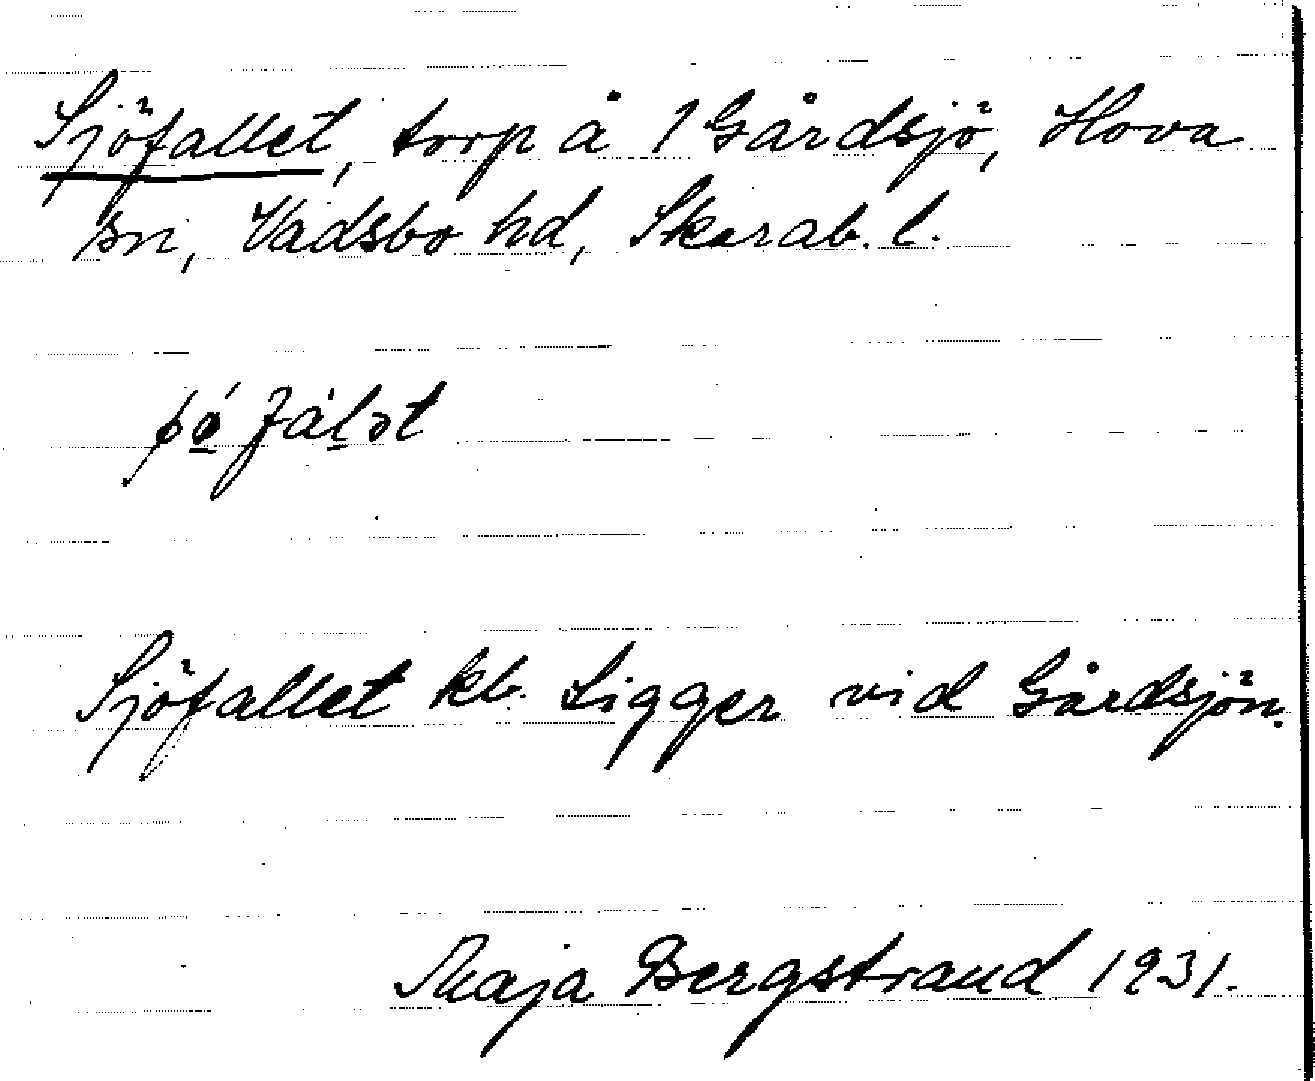 Sjöfallet, torp å 1 Gårdsjö, Hova
sn, Vadsbo hd, Skarab. l.
Sjöfallet kb. Ligger vid Gårdsjön.
Maja Bergstrand 1931.